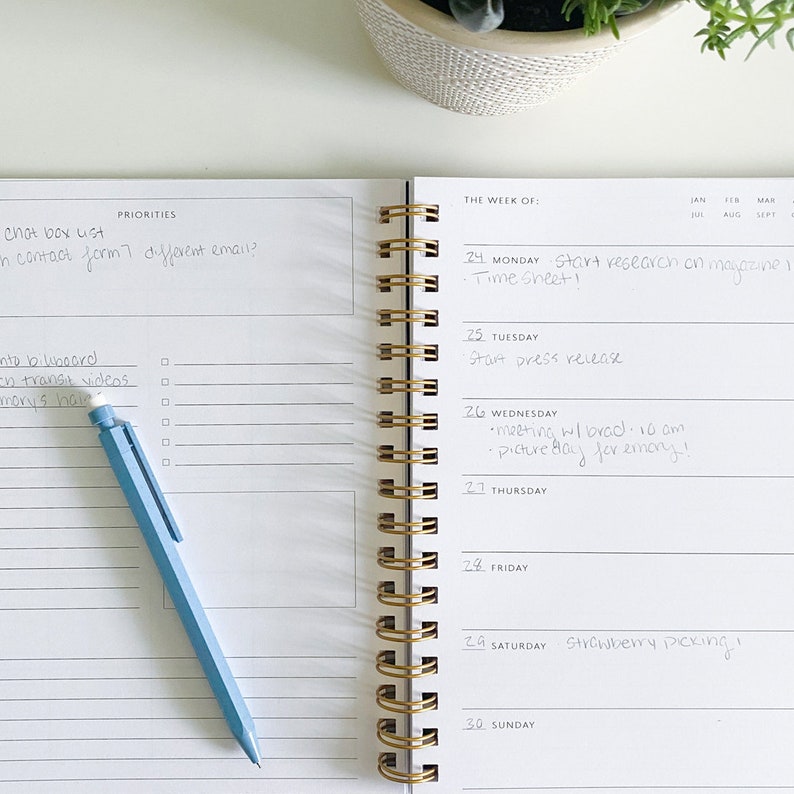 PRIORITIES
chat box list
contact form? different email?
billboard
transit videos
THE WEEK OF:
JAN FEB MAR
JUL AUG SEPT
24 MONDAY · Start research on magazine
· Time sheet!
25 TUESDAY
· Start press release
26 WEDNESDAY
· meeting w/ brad · 10 am
· picture day for emory!
27 THURSDAY
28 FRIDAY
29 SATURDAY · Strawberry picking!
30 SUNDAY